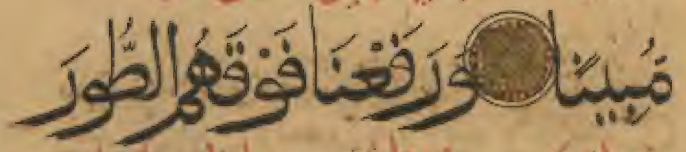 مُبِينًا وَرَفَعْنَا فَوْقَهُمُ الطُّورَ